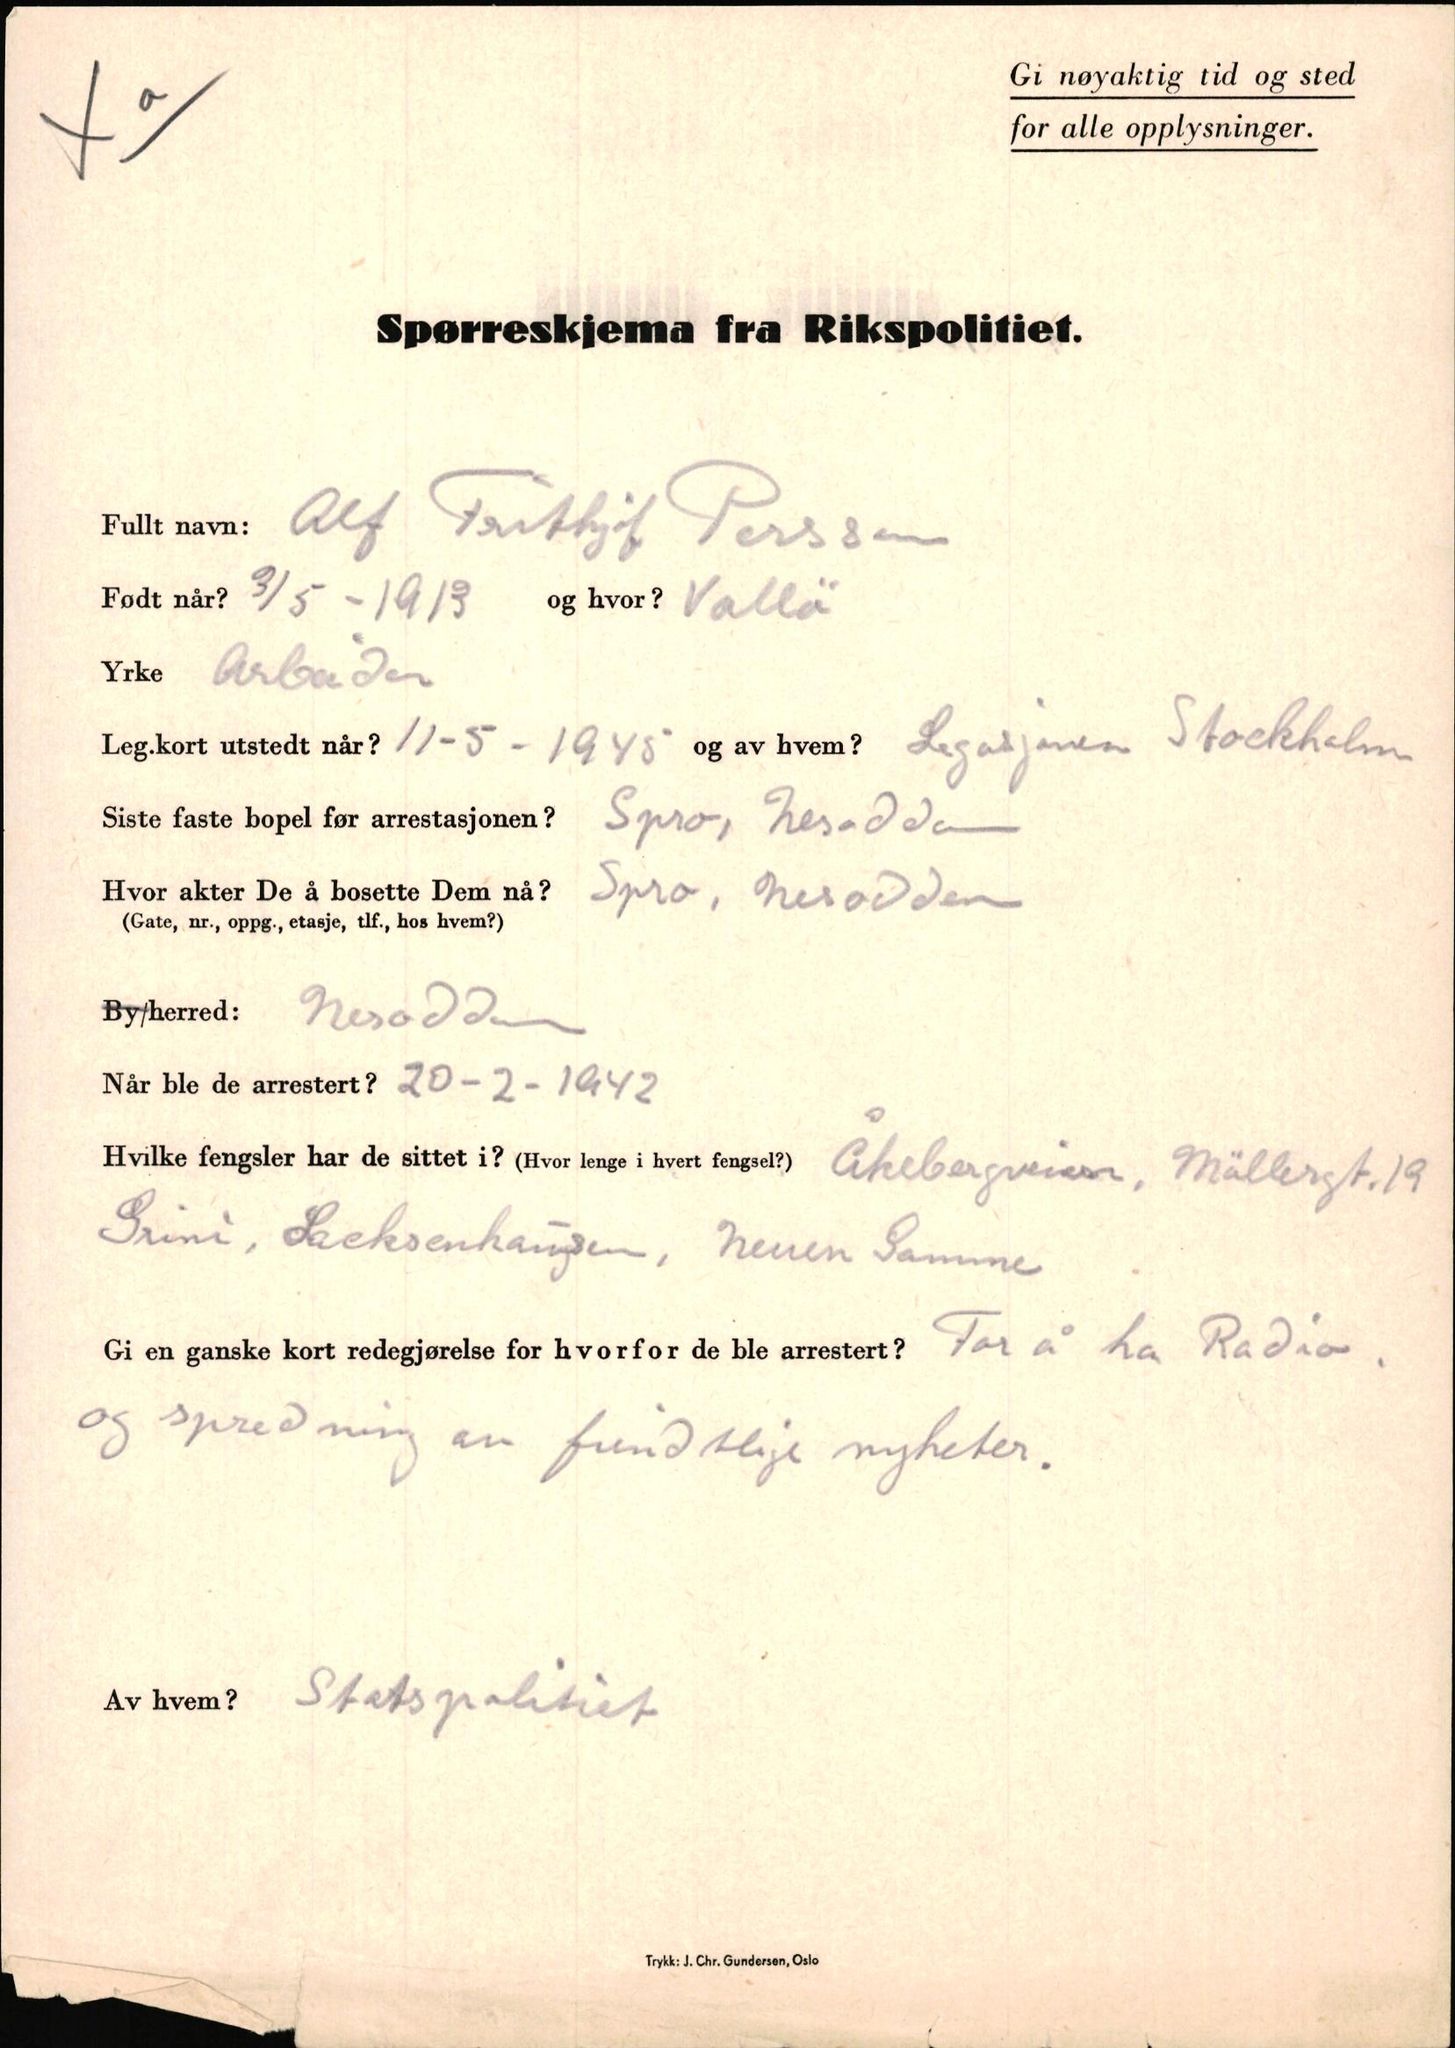 Gi nøyaktig tid og sted
for alle opplysninger.
Spørreskjema fra Rikspolitiet.
Fullt navn: Alf Frithjof Perssen
Født når? 3/5 - 1913 og hvor? Vallö
Yrke Arbeider
Leg.kort utstedt når? 11-5-1945 og av hvem? Legasjonen Stockholm
Siste faste bopel før arrestasjonen? Spro, Nesodden
Hvor akter De å bosette Dem nå? Spro, Nesodden
(Gate, nr., oppg., etasje, tlf., hos hvem?)
By/herred: Nesodden
Når ble de arrestert? 20-2-1942
Hvilke fengsler har de sittet i? (Hvor lenge i hvert fengsel?) Åkebergveien, Möllergt. 19
Grini, Sacksenhausen, Neuen Gamme
Gi en ganske kort redegjørelse for hvorfor de ble arrestert? For å ha Radio.
og spredning av fiendtlige nyheter.
Av hvem? Statspolitiet
Trykk: J. Chr. Gundersen, Oslo